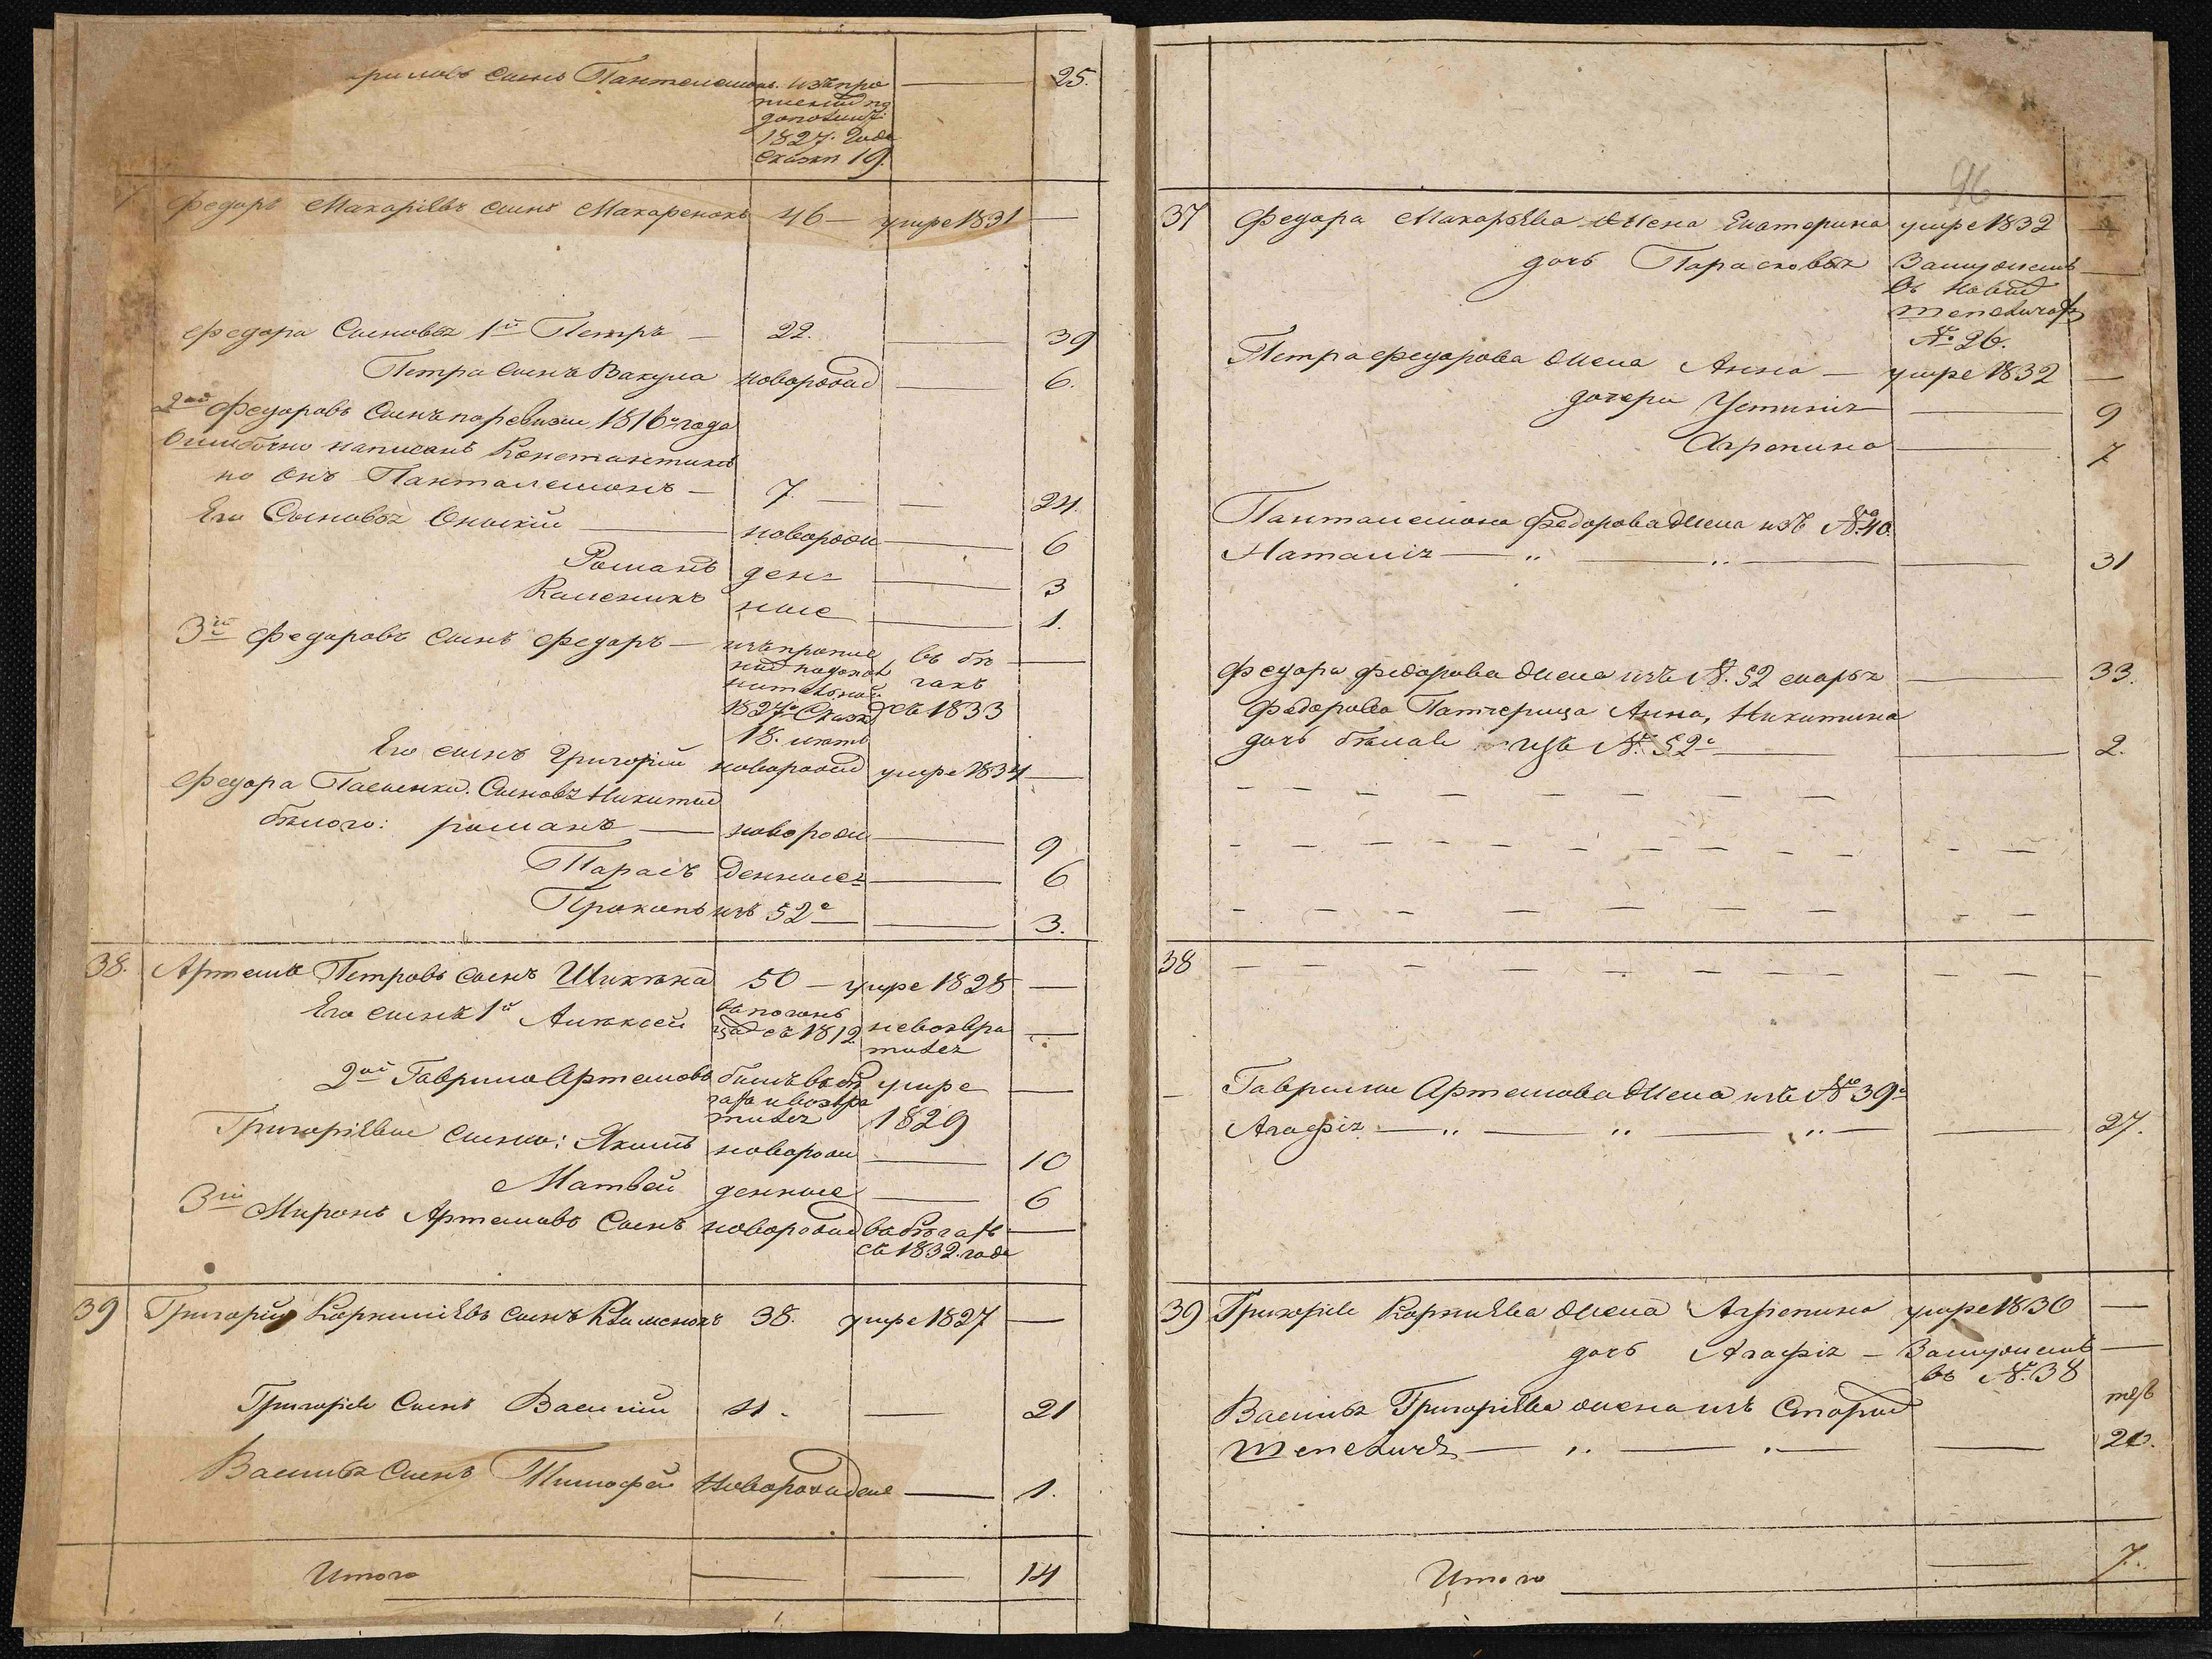 сынъ Пантелеимонъ. изъ про 25.
писныхъ по
дополнит:
1827. Года
Сказки 19.
Федоръ Макаріевъ сынъ Макаренокъ 46 — умре 1831 —
Федора Сыновья 1й Петръ — 22. — 39
Петра Сынъ Вакула новорожд — 6.
2ой Федоровъ Сынъ по ревизіи 1816го года
Ошибочно написанъ Константинъ
но онъ Панталемонъ — 7. — — 24
Его Сыновья — новорож — 6
Романъ ден= — 3
Каленикъ ные — 1.
3й Федоровъ сынъ Федоръ — изъ пропис въ бѣ —
ной по допол гахъ
нительной съ 1833
1827го Сказк
18.
Его сынъ Григорій новорожд умре 1834 —
Федора Пасынки. Сыновья Никиты
бѣлого: романъ — новорож — 9
Тарасъ денные — 6
Прокопъ изъ 52го — 3.
38. Артемъ Петровъ сынъ 50 — умре 1828 —
Его сынъ 1й Алексей съ 1812 невозвра —
тился
2ой Гаврило Артемовъ былъ въ бѣ умре —
гахъ и возвра 1829
тился
Григоріевы сыны: Якимъ новорож — 10
Матвей денные — 6
3й Миронъ Артемовъ Сынъ новорожд въ бѣгахъ —
съ 1832. года
39 Григорій Корниліевъ сынъ Клименокъ 38. умре 1827 —
Григорія Сынъ Василій 11. — 21
Василья Сынъ Тимофей Новорожденъ — 1.
Итого — — 14
96
37 Федора Макарьева жена Екатерина умре 1832 —
дочь Парасковья Замужемъ —
въ новой
№ 26.
Петра Федорова жена Анна — умре 1832 —
дочери Устинія — 9
Агрепина — 7
Панталемона Федорова жена изъ №40.
Наталія — „ — „ — — 31
Федора Федорова жена изъ №. 52 — 33.
Федорова Патчерица Анна, Никитина
дочь бѣлаго изъ №. 52го — 2.
38 — — — — — — — — —
Гаврилы Артемова жена изъ № 39го
Агафія — „ — „ — „ — — 27.
39 Григорія Корніева жена Агрепина умре 1830 —
дочь Агафія — Замужемъ —
въ №. 38
Василья Григоріева жена изъ Старой
— „ — „ — — 20.
Итого — 7.